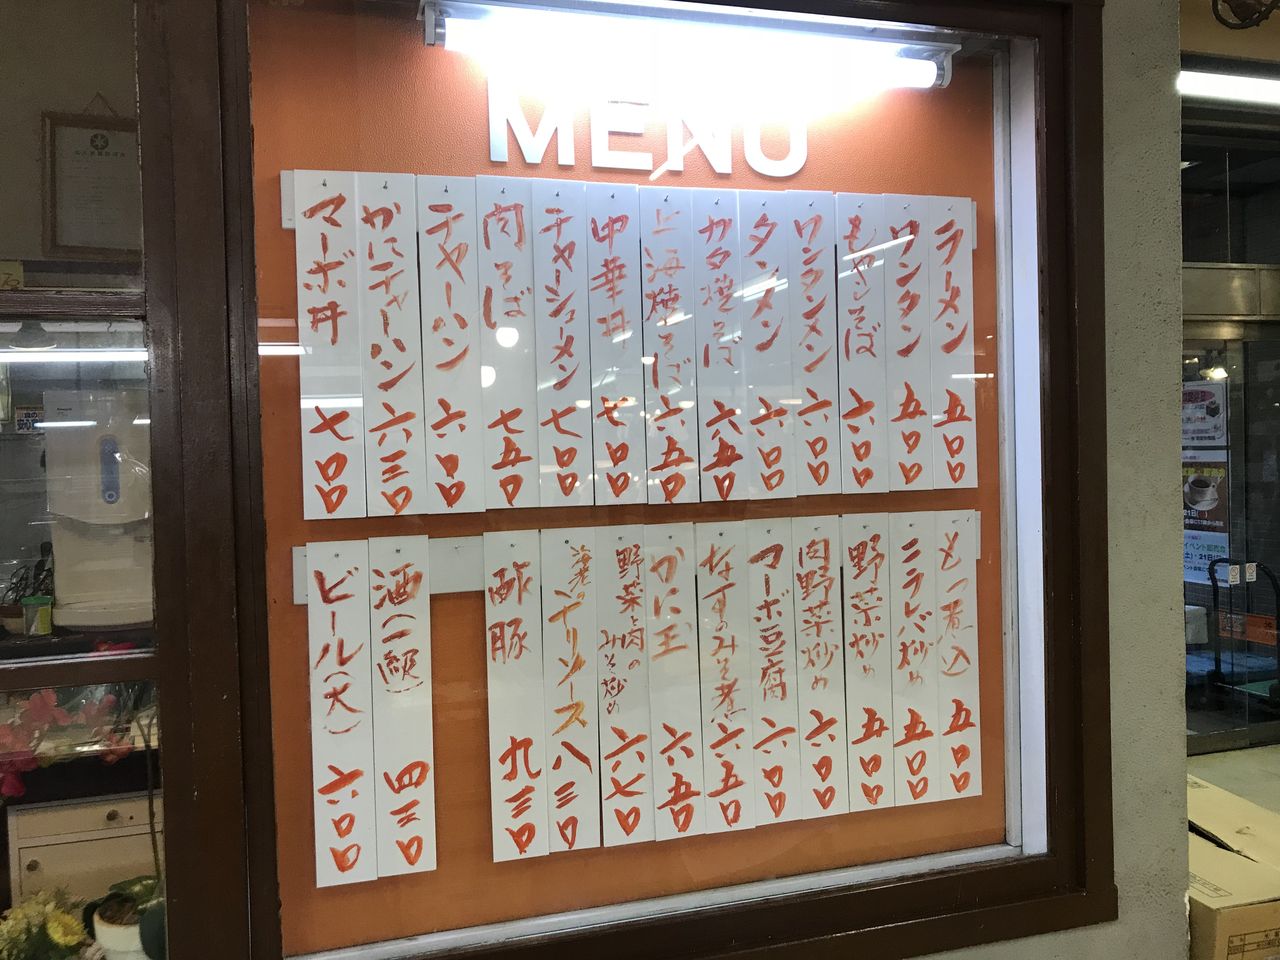 MENU
ラーメン 五〇〇
ワンタン 五〇〇
もやしそば 六〇〇
ワンタンメン 六〇〇
タンメン 六〇〇
カタ焼そば 六五〇
上海焼そば 六五〇
中華丼 七〇〇
チャーシューメン 七〇〇
肉そば 七五〇
チャーハン 六〇〇
かにチャーハン 六三〇
マーボ丼 七〇〇
もつ煮込 五〇〇
ニラレバ炒め 五〇〇
野菜炒め 五〇〇
肉野菜炒め 六〇〇
マーボ豆腐 六〇〇
なすのみそ煮 六五〇
かに玉 六五〇
野菜と肉のみそ炒め 六七〇
海老チリソース 八三〇
酢豚 九三〇
酒(一級) 四三〇
ビール(大) 六〇〇